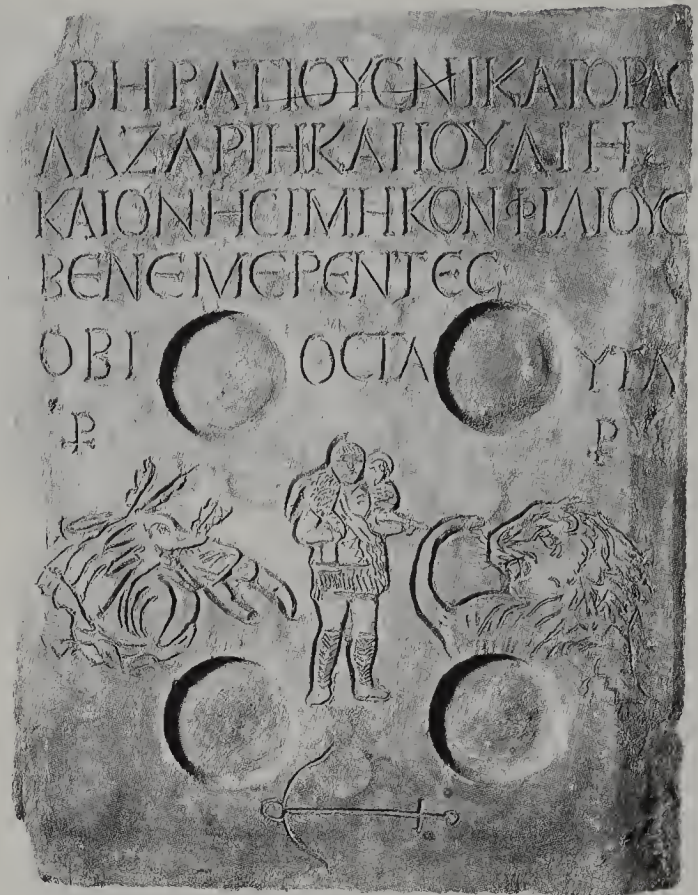 ΒΗΡΑΤΙΟΥϹΝΙΚΑΤΟΡΑϹ
ΛΑΖΑΡΙΗΚΑΙΙΟΥΛΙΗ
ΚΑΙΟΝΗϹΙΜΗΚΟΝΦΙΛΙΟΥϹ
ΒΕΝΕΜΕΡΕΝΤΕϹ
ΟΒΙ ΟϹΤΑ ΥΤΑ
⳨ ⳨